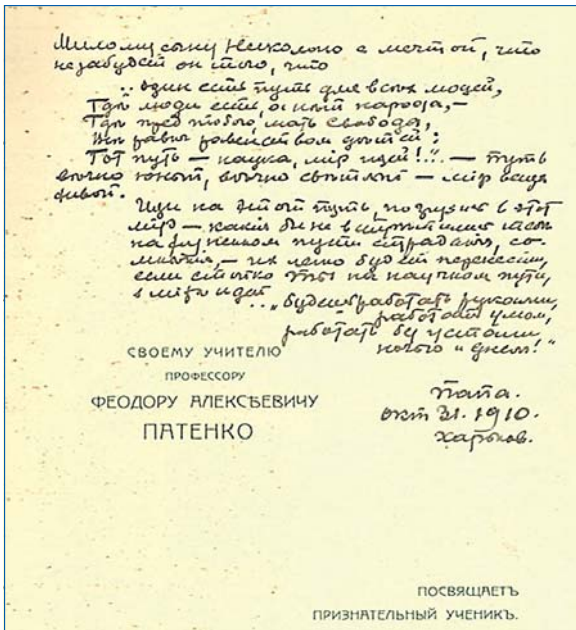 Милому сыну Николаю с мечтой, что
не забудет он того, что
„один есть путь для всех людей,
Где люди есть, а нет народа, —
Где пред тобою, мать свобода,
равны равенством детей:
Тот путь — наука, мiр идей!“ — путь
вѣчно юный, вѣчно свѣтлый — мiр вѣчно
живой.
Иди на этот путь, в этот
мiр — какiя бы не встрѣтились тебѣ
на пути страданья, со-
мнѣнья, — их легко будет перенести,
если стойко ты на научном пути,
в мiрѣ идей
.. „будешь работать руками,
работать умом,
работать без устали
ночью и днем!“
Папа.
окт 31. 1910.
Харьков.
СВОЕМУ УЧИТЕЛЮ
ПРОФЕССОРУ
ФЕОДОРУ АЛЕКСѢЕВИЧУ
ПАТЕНКО
ПОСВЯЩАЕТЪ
ПРИЗНАТЕЛЬНЫЙ УЧЕНИКЪ.